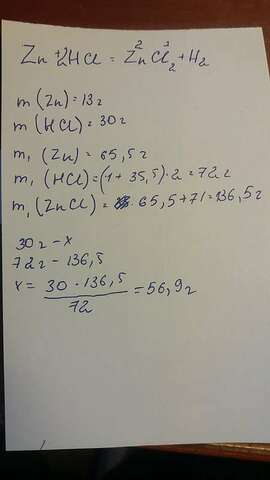 Zn + 2HCl = Zn²Cl¹₂ + H₂
m (Zn) = 13г
m (HCl) = 30г
m₁ (Zn) = 65,5г
m₁ (HCl) = (1 + 35,5) · 2 = 72г
m₁ (ZnCl) = 65,5 + 71 = 136,5г
30г - x
72г - 136,5
x = 30 · 136,5 / 72 = 56,9г